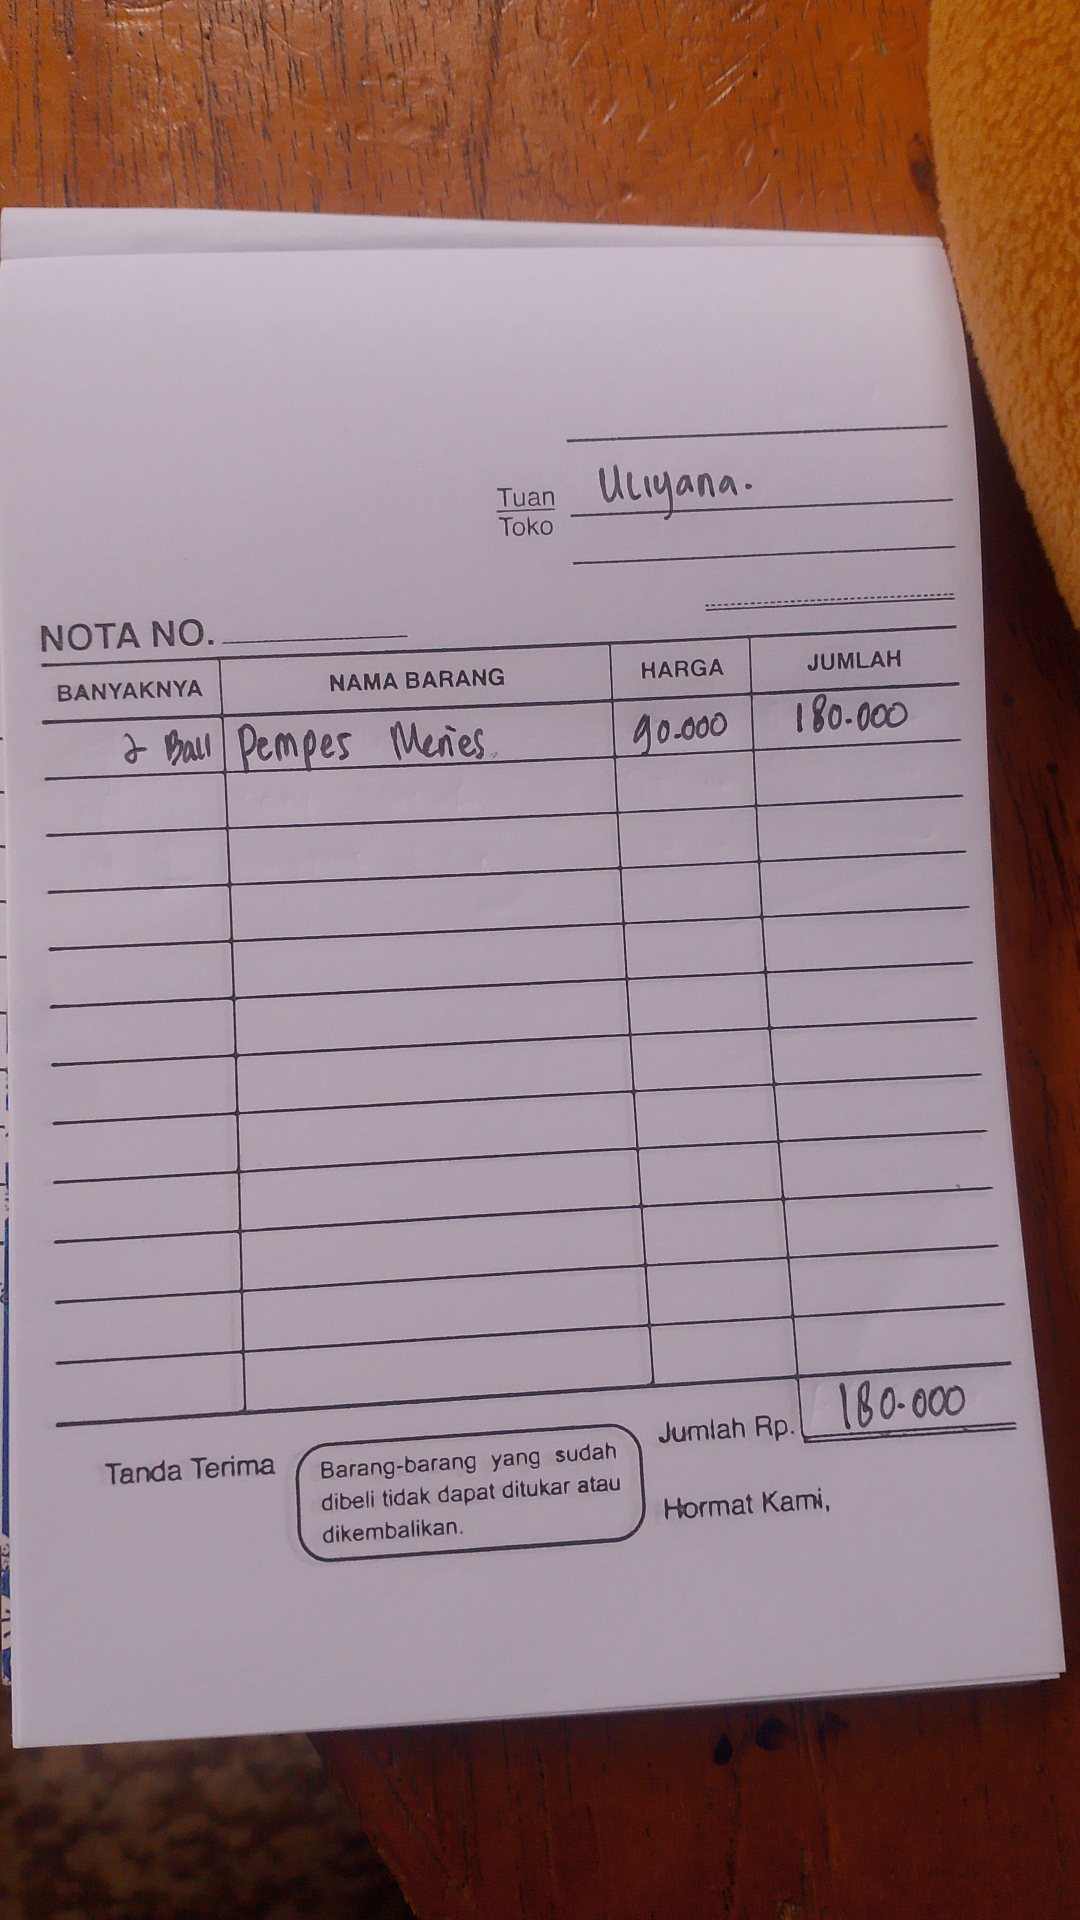 Tuan
Toko
Uliyana.
NOTA NO.
BANYAKNYA NAMA BARANG HARGA JUMLAH
2 Ball Pempes Meries 90.000 180.000
Jumlah Rp. 180.000
Tanda Terima
Barang-barang yang sudah
dibeli tidak dapat ditukar atau
dikembalikan.
Hormat Kami,